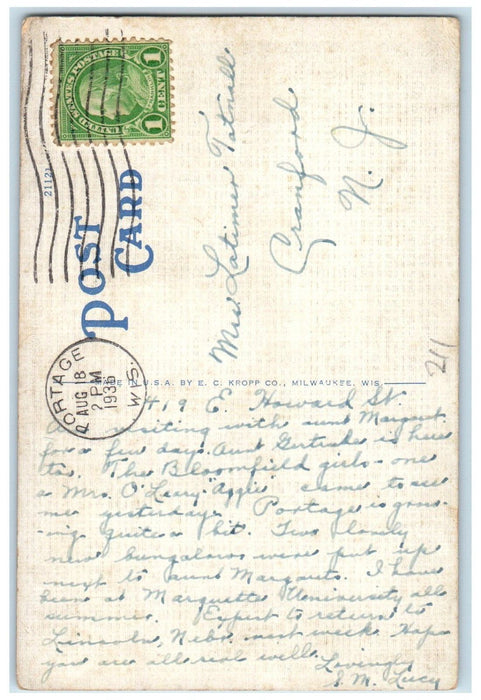 UNITED STATES POSTAGE
1 CENT 1
21121
POST
CARD
PORTAGE
AUG 18
2 PM
1936
WIS.
Mrs. Latimer Tatnall
Cranford
N. J.
211
MADE IN U.S.A. BY E. C. KROPP CO., MILWAUKEE, WIS.
419 E. Howard St.
Am visiting with aunt Margaret
for a few days. Aunt Gertrude is here
too. The Bloomfield girls - one
a Mrs. O'Leary "Aggie" came to see
me yesterday. Portage is grow-
ing quite a bit. Two lovely
new bungalows were put up
next to aunt Margarets. I have
been at Marquette University all
summer. Expect to return to
Lincoln, Nebr. next week. Hope
you are all real well.
Lovingly
S. M. Lucy